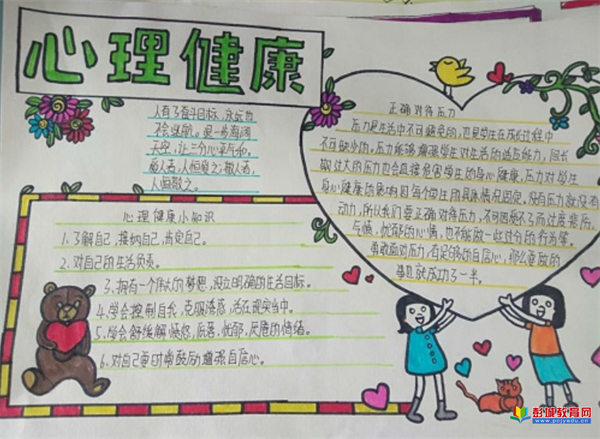 心理健康
人有了奋斗目标,永远也
不会迷航。退一步海阔
天空,让三分心平气和,
爱人者,人恒爱之;敬人者,
人恒敬之。
心理健康小知识
1.了解自己,接纳自己,肯定自己。
2.对自己的生活负责。
3.拥有一个伟大的梦想,设立明确的生活目标。
4.学会控制自我,克服诱惑,活在现实当中。
5.学会舒缓解愤怒,低落,忧郁,厌倦的情绪。
6.对自己要时常鼓励,增强自信心。
正确对待压力
压力是生活中不可避免的,也是学生在成长过程中
不可缺少的。压力能够增强学生对生活的适应能力,但长
期过大的压力也会直接危害学生的身心健康。压力对学生
身心健康的影响因每个学生的具体情况而定,没有压力就没有
动力,所以我们要正确对待压力,不可因受不了而过度悲伤,
气愤,忧郁的心情,也不能做一些过分的行为等。
勇敢面对压力,有足够的自信心,那么要做的
事业就成功了一半。
彭城教育网
www.pcjyedu.cn